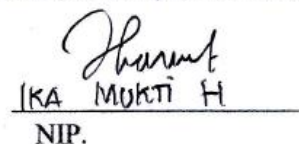 IKA MUKTI H
NIP.